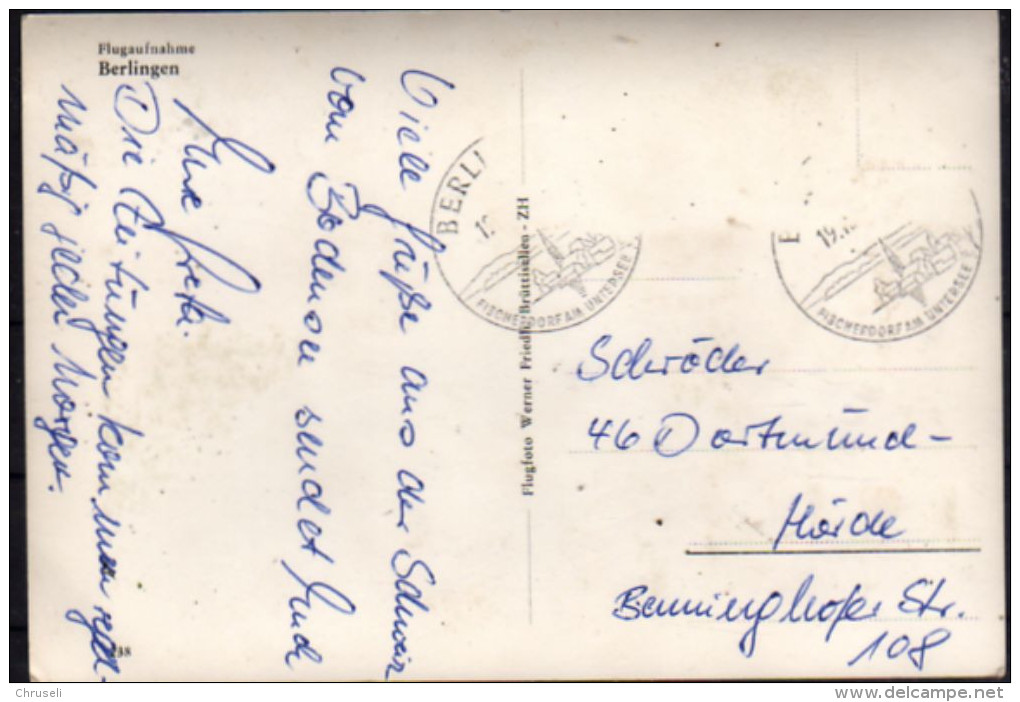 Flugaufnahme
Berlingen
Viele Grüße aus der Schweiz
vom Bodensee sendet Euch
Eure Greta.
Die Zeitungen kommen regel-
mäßig jeden Morgen.
BERLI
FISCHERDORF AM UNTERSEE
Flugfoto Werner Friedli, Brüttisellen - ZH
19.
FISCHERDORF AM UNTERSEE
Schröder
46 Dortmund-
Hörde
Benninghofer Str.
108
38
Chruseli
www.delcampe.net